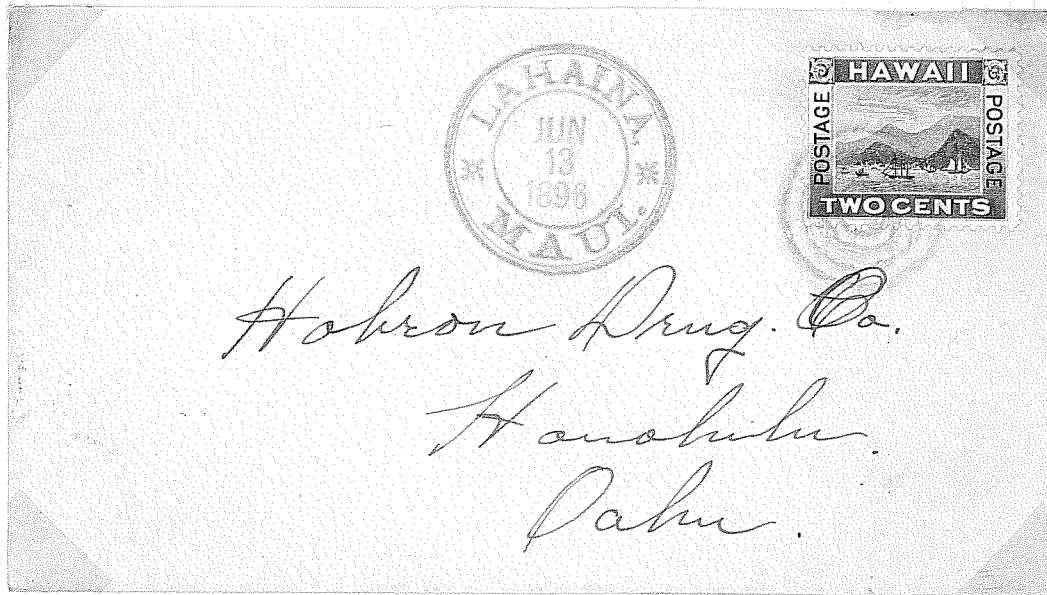 LAHAINA,
JUN
13
1896
MAUI.
HAWAII
POSTAGE
POSTAGE
TWO CENTS
Hobron Drug. Co.
Honolulu.
Oahu.